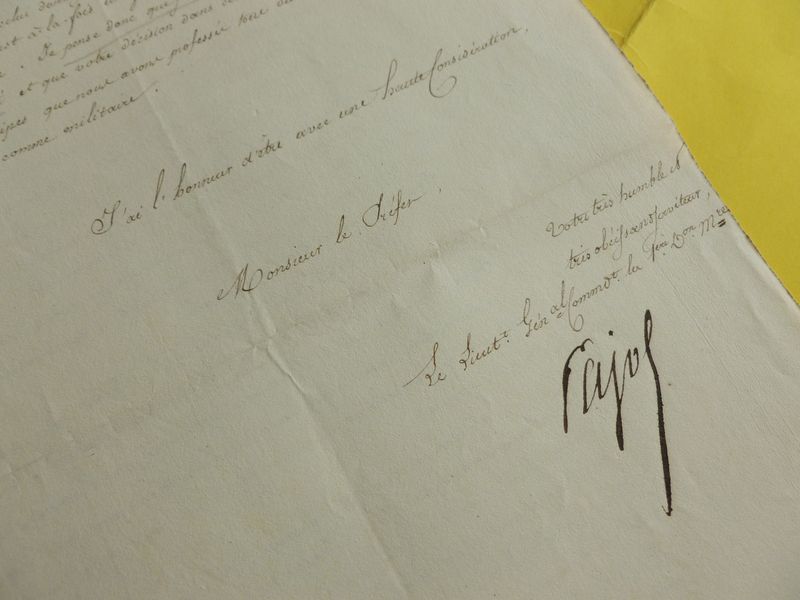 est à la fois
. Je pense donc que
et que votre décision dans
que nous avons professée
comme militaire.
J'ai l'honneur d'être avec une haute Considération,
Monsieur le Préfet,
Votre très humble et
très obéissant serviteur,
Le Lieut.t Génal Commdt la 1ère Don Mre
Pajol